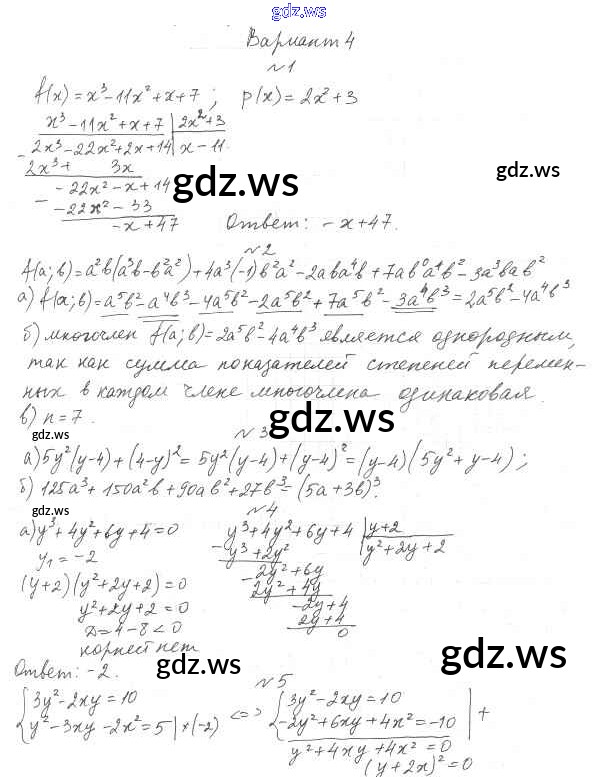 gdz.ws
Вариант 4
№1
f(x)=x³-11x²+x+7; p(x)=2x²+3
x³-11x²+x+7 | 2x²+3
- 2x³-22x²+2x+14 | x-11
2x³+ 3x
- -22x²-x+14
-22x²-33
-x+47 Ответ: -x+47.
gdz.ws
gdz.ws
№2
f(a;b)=a²b(a³b-b²a²)+4a³(-1)b²a²-2aba⁴b+7ab⁰a⁴b²-3a³bab²
а) f(a;b)=a⁵b²-a⁴b³-4a⁵b²-2a⁵b²+7a⁵b²-3a⁴b³=2a⁵b²-4a⁴b³
б) многочлен f(a;b)=2a⁵b²-4a⁴b³ является однородным,
так как сумма показателей степеней перемен-
ных в каждом члене многочлена одинаковая.
в) n=7.
gdz.ws
gdz.ws
№3
а) 5y²(y-4)+(4-y)²=5y²(y-4)+(y-4)²=(y-4)(5y²+y-4);
б) 125a³+150a²b+90ab²+27b³=(5a+3b)³.
gdz.ws
№4
а) y³+4y²+6y+4=0 y³+4y²+6y+4 | y+2
y₁=-2 - y³+2y² | y²+2y+2
(y+2)(y²+2y+2)=0 - 2y²+6y
y²+2y+2=0 2y²+4y
D=4-8<0 - 2y+4
корней нет 2y+4
0
Ответ: -2.
gdz.ws
gdz.ws
№5
{3y²-2xy=10 {3y²-2xy=10
{y²-3xy-2x²=5 | ×(-2) <=> {-2y²+6xy+4x²=-10 | +
y²+4xy+4x²=0
(y+2x)²=0